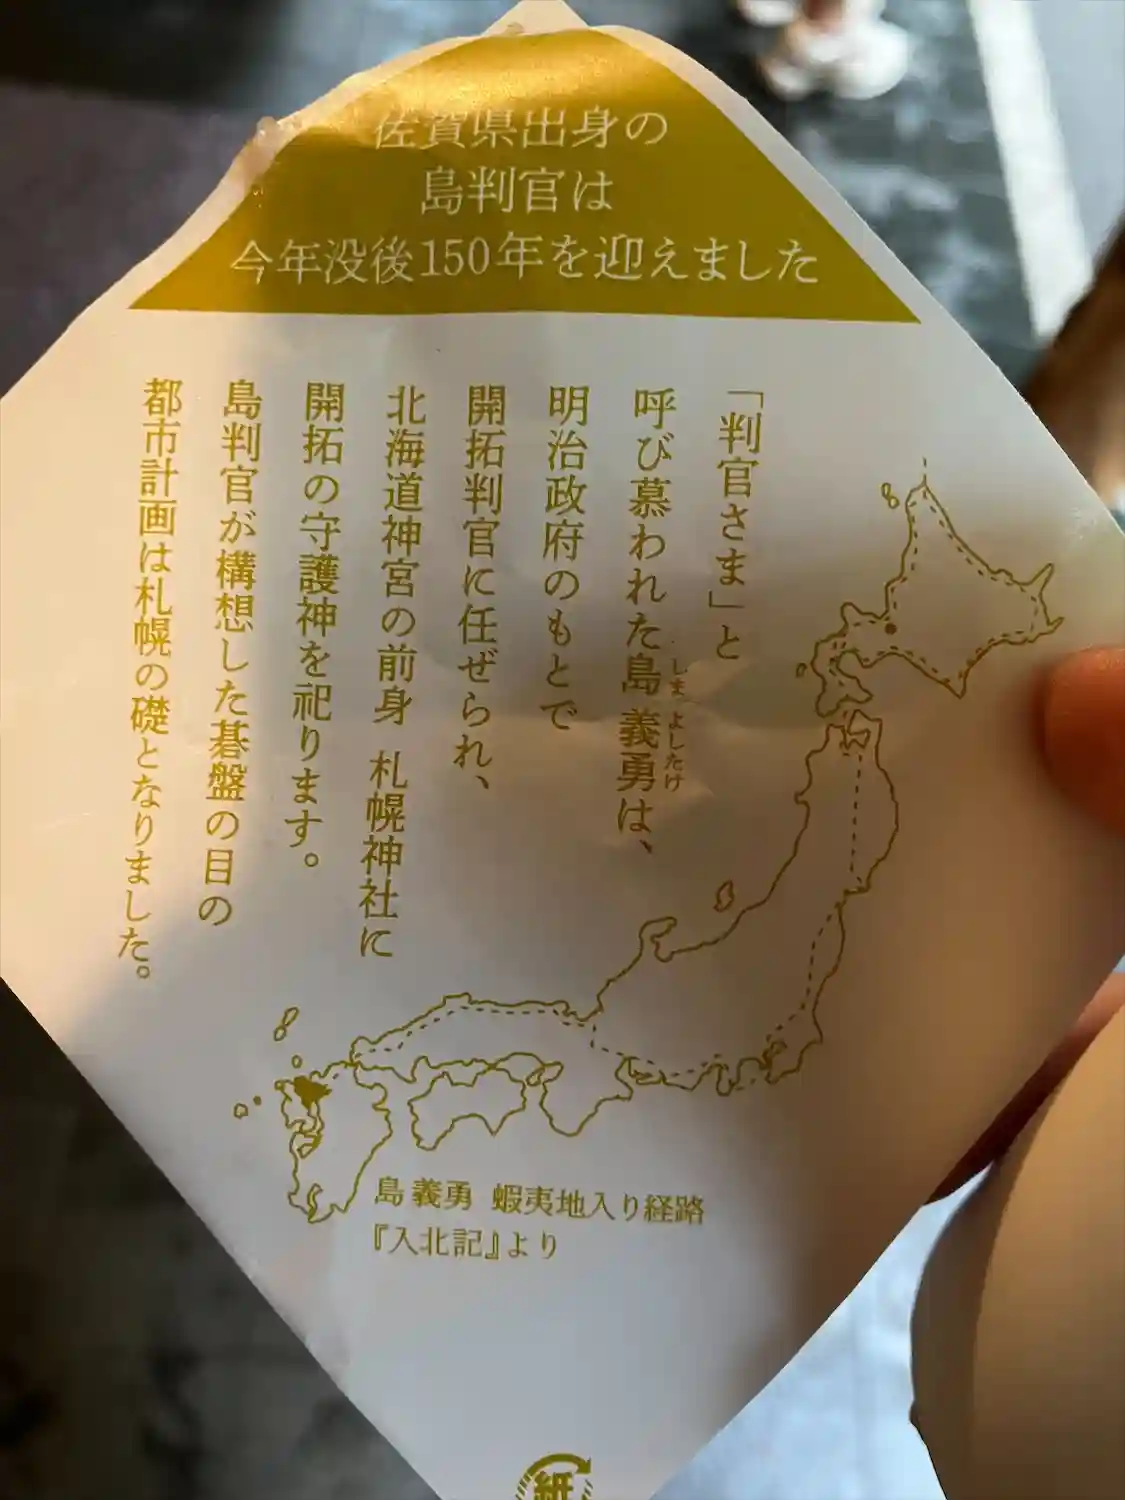 佐賀県出身の
島判官は
今年没後150年を迎えました
「判官さま」と
呼び慕われた島義勇は、
しま よしたけ
明治政府のもとで
開拓判官に任ぜられ、
北海道神宮の前身 札幌神社に
開拓の守護神を祀ります。
島判官が構想した碁盤の目の
都市計画は札幌の礎となりました。
島義勇 蝦夷地入り経路
『入北記』より
紙